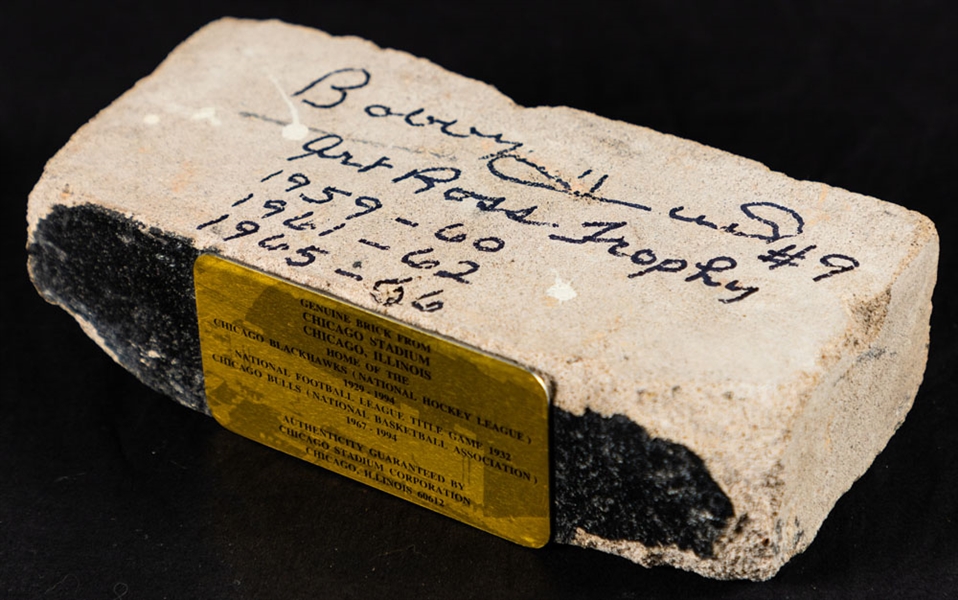 Bobby Hull #9
Art Ross Trophy
1959-60
1961-62
1965-66
GENUINE BRICK FROM
CHICAGO STADIUM
CHICAGO, ILLINOIS
HOME OF THE
CHICAGO BLACKHAWKS (NATIONAL HOCKEY LEAGUE)
1929-1994
NATIONAL FOOTBALL LEAGUE TITLE GAME 1932
CHICAGO BULLS (NATIONAL BASKETBALL ASSOCIATION)
1967-1994
AUTHENTICITY GUARANTEED BY
CHICAGO STADIUM CORPORATION
CHICAGO, ILLINOIS 60612